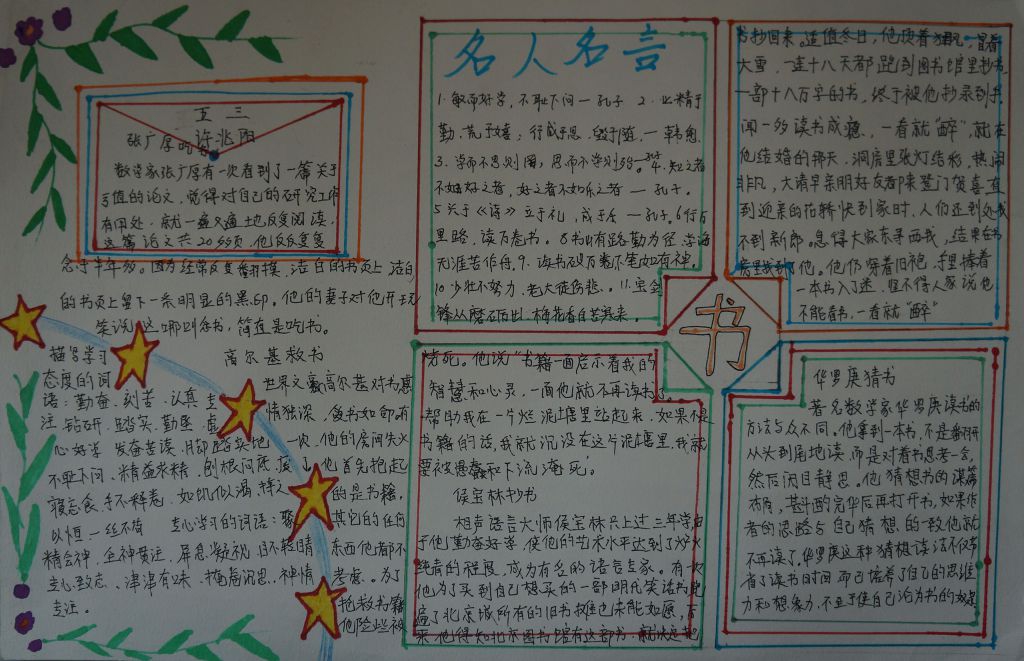 五 三
许兆阳
张广厚吃书
数学家张广厚有一次看到了一篇关于
亏值的论文，觉得对自己的研究工作
有用处，就一遍又遍土也反复阅读。
这篇论文共20多页，他反反复复
念了半年多。因为经常反复翻摸，洁白的书页上，洁白
的书页上留下一条明显的黑印。他的妻子对他开玩
笑说，这哪叫念书，简直是吃书。
描写学习
态度的词
语：勤奋、刻苦、认真、专
注、钻研、踏实、勤恳、虚
心好学、发奋苦读、脚踏实地、
不耻下问、精益求精、刨根问底、废
寝忘食、手不释卷、如饥似渴、持之
以恒、一丝不苟 专心学习的词语：聚
精会神、全神贯注、屏息凝视、目不转睛、
专心致志、津津有味、掩卷沉思、神情
专注。
高尔基救书
世界文豪高尔基对书感
情独深，爱书如命，有
一次，他的房间失火
了，他首先抱起
的是书籍，
其它的任何
东西他都不
考虑。为了
抢救书籍，
他险些被
烧死。他说“书籍一面启示着我的
智慧和心灵，一面他就不再读书了，
帮助我在一片烂泥塘里站起来，如果不是
书籍的话，我就沉没在这片泥塘里，我就
要被愚蠢和下流淹死。
侯宝林抄书
相声语言大师侯宝林只上过三年学，由
于他勤奋好学，使他的艺术水平达到了炉火
纯青的程度，成为有名的语言专家。有一次，
他为了买到自己想买的一部明代笑话书，跑
遍了北京城所有的旧书摊也未能如愿，后
来，他得知北京图书馆有这部书，就决定把
书抄回来。适值冬日，他顶着狂风，冒着
大雪，一连十八天都跑到图书馆里抄书，
一部十八万字的书，终于被他抄录到手。
闻一多读书成瘾，一看就“醉”，就在
他结婚的那天，洞房里张灯结彩，热闹
非凡，大清早亲朋好友都来登门贺喜，直
到迎亲的花轿快到家时，人们还到处找
不到新郎。急得大家东寻西找，结果在书
房里找到了他。他仍穿着旧袍，手里捧着
一本书入了迷，怪不得人家说他
不能看书，一看就“醉”
名人名言
1. 敏而好学，不耻下问 — 孔子 2. 业精于
勤，荒于嬉；行成于思，毁于随，— 韩愈
3. 学而不思则罔，思而不学则殆— 4. 知之者
不如好之者，好之者不如乐之者 — 孔子。
5 关于《诗》立于礼，成于乐 — 孔子。6行万
里路，读万卷书。8书山有路勤为径，学海
无涯苦作舟。9、读书破万卷下笔如有神，
10 少壮不努力，老大徒伤悲。11. 宝剑
锋从磨砺出，梅花香自苦寒来。
书
华罗庚猜书
著名数学家华罗庚读书的
方法与众不同。他拿到一本书，不是翻开
从头到尾地读，而是对着书思考一会，
然后闭目静思。他猜想书的谋篇
布局，斟酌完毕后再打开书，如果作
者的思路与自己猜想的一致，他就
不再读了，华罗庚这种猜想读法不仅节
省了读书时间，而且培养了自己的思维
力和想象力，不至于使自己沦为书的奴隶